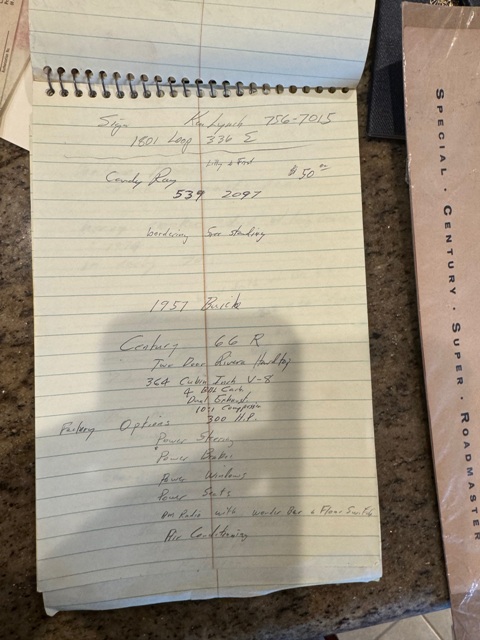 Sign Ken Lynch 756-7015
1801 Loop 336 E
Candy Ray $50
539 2097
bordering free standing
1957 Buick
Century 66 R
Two Door Riviera Hardtop
364 Cubic Inch V-8
4 BBL Carb
Dual Exhaust
10-1 Compression
300 H.P.
Factory Options
Power Steering
Power Brakes
Power Windows
Power Seats
AM Radio with Wonder Bar & Floor
Air Conditioning
SPECIAL · CENTURY · SUPER · ROADMASTER